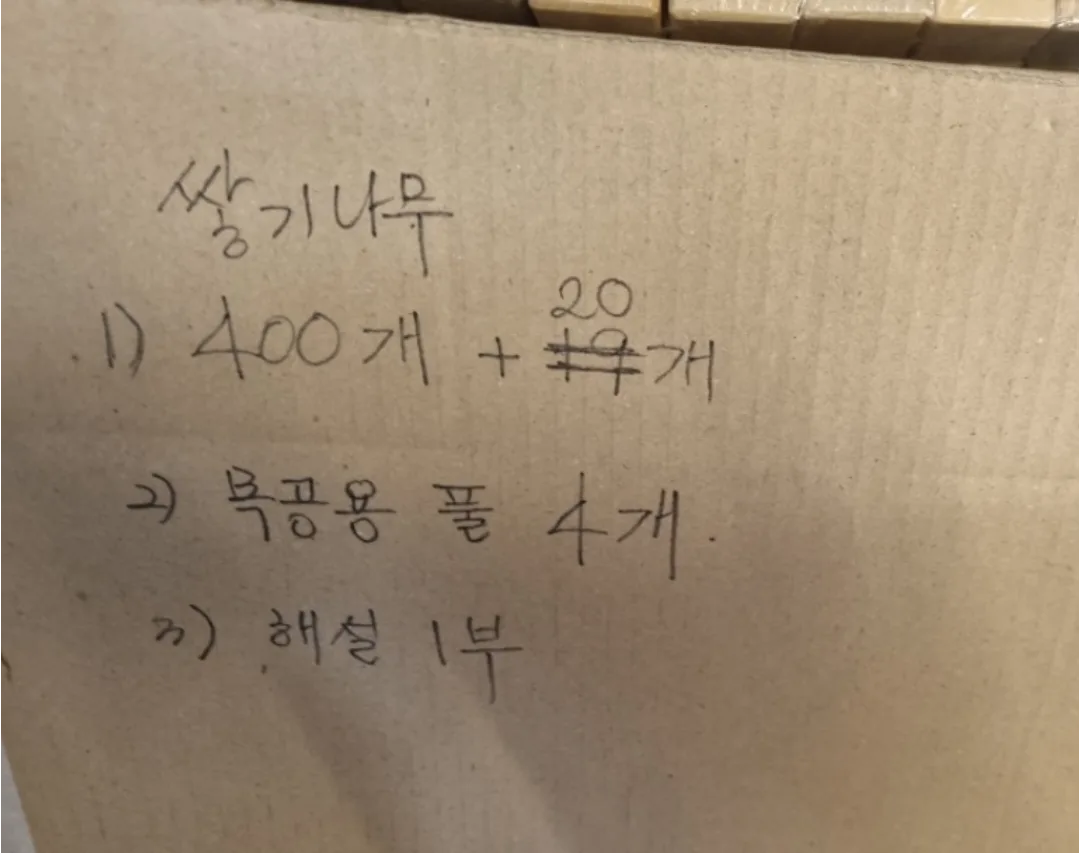 쌓기나무
1) 400개 + 20개
2) 목공용 풀 4개.
3) 해설 1부